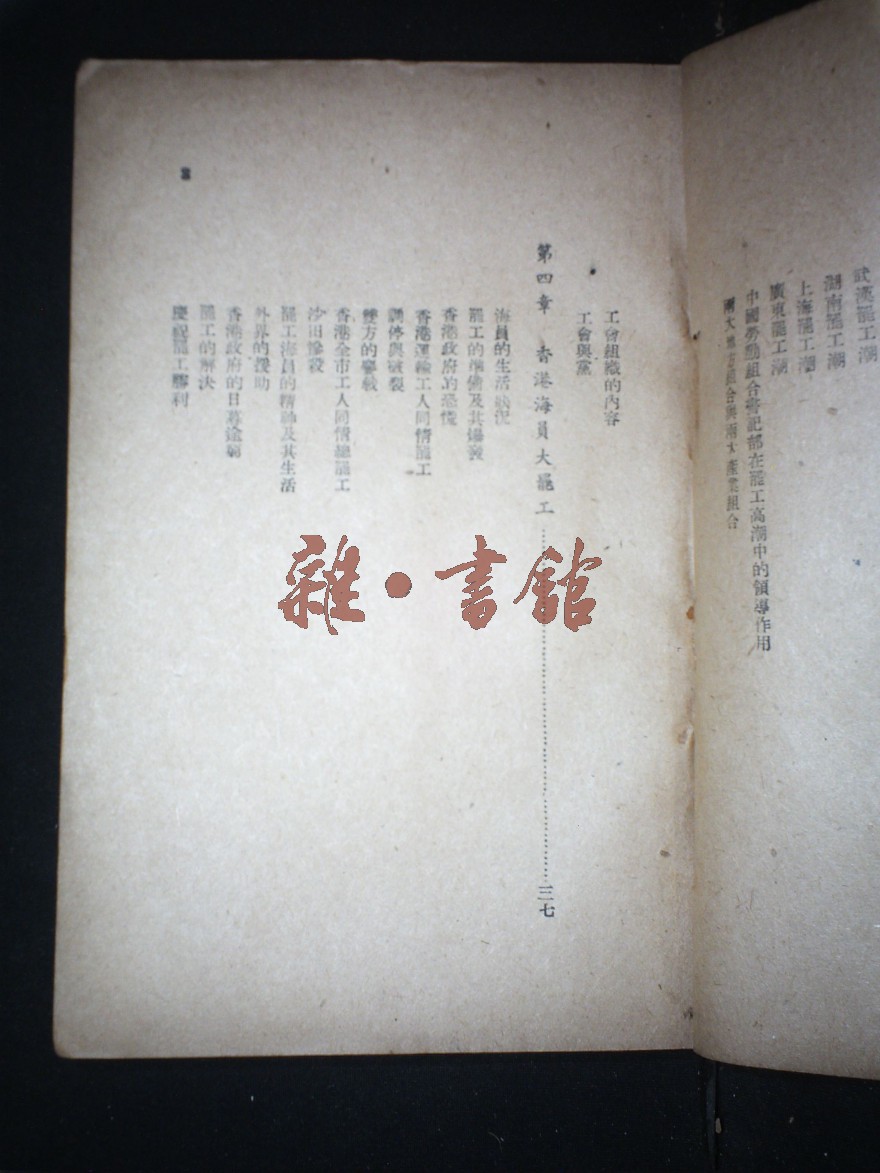 武漢罷工潮
湖南罷工潮
上海罷工潮
廣東罷工潮
中國勞動組合書記部在罷工高潮中的領導作用
兩大地方組合與兩大產業組合
工會組織的內容
工會與黨
第四章 香港海員大罷工……三七
海員的生活狀況
罷工的準備及其爆發
香港政府的恐慌
香港運輸工人同情罷工
調停與破裂
雙方的
香港全市工人同情總罷工
沙田慘殺
罷工海員的精神及其生活
外界的援助
香港政府的日暮途窮
罷工的解決
慶祝罷工勝利
雜·書館